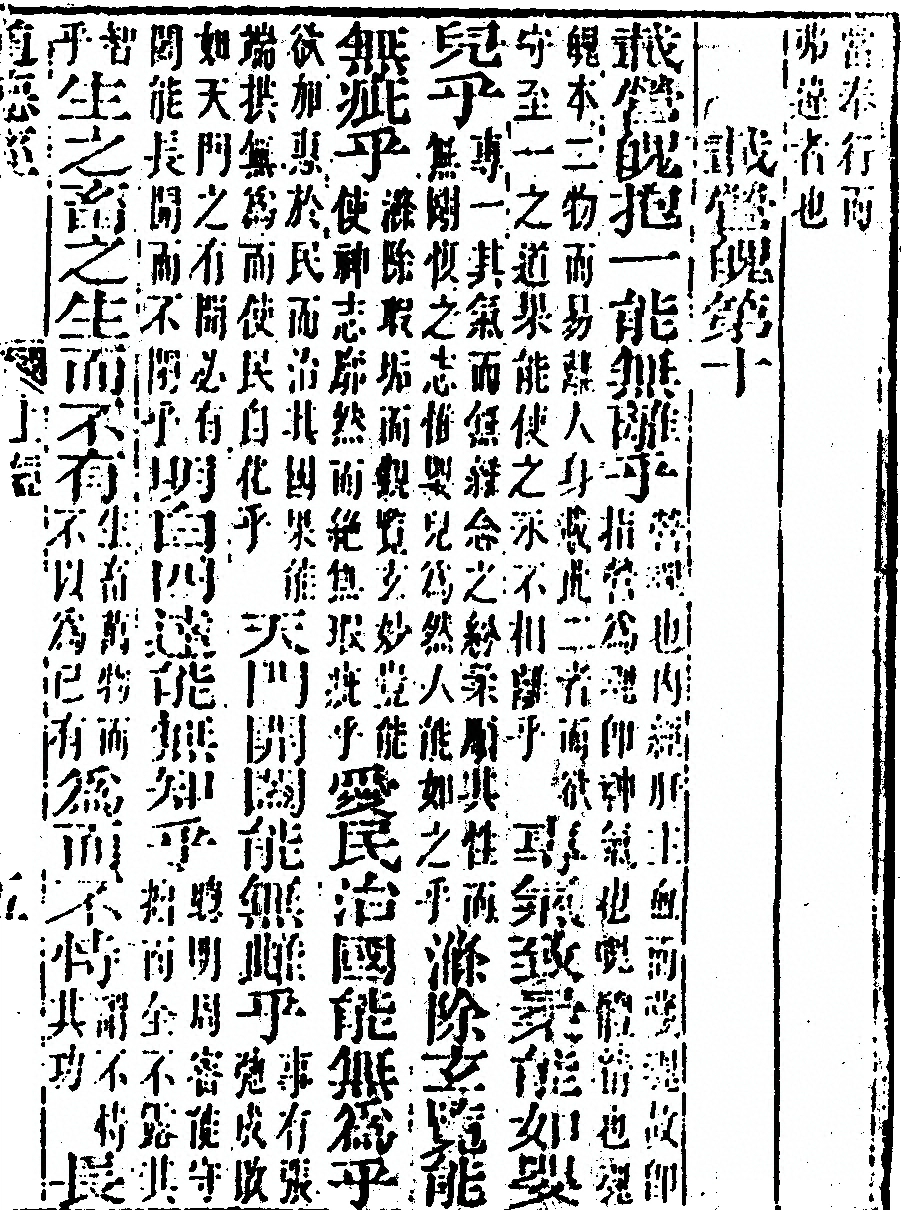 當奉行而
弗違者也
載營魄第十
載營魄抱一能無離乎營魂也內經肝主血而藏魂故即
指營為魂即神氣也魄體質也魂
魄本二物而易離人身載此二者而欲
守至一之道果能使之永不相離乎專氣致柔能如嬰
兒乎專一其氣而無雜念之紛柔順其性而
無剛愎之志惟嬰兒為然人能如之乎滌除玄覽能
無疵乎滌除瑕垢而觀覽玄妙豈能
使神志廓然而絕無瑕疵乎愛民治國能無為乎
欲加惠於民而治其國果能
端拱無為而使民自化乎天門開闔能無雌乎事有張
弛成敗
如天門之有開必有
闔能長開而不閉乎明白四達能無知乎聰明周審能守
拙而全不露其
智
乎生之畜之生而不有生育萬物而
不以為己有為而不恃謂不恃
其功長
上篇